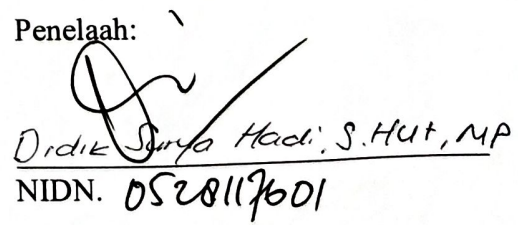 Penelaah:
Didik Surya Hadi, S.Hut, MP
NIDN. 0528117601